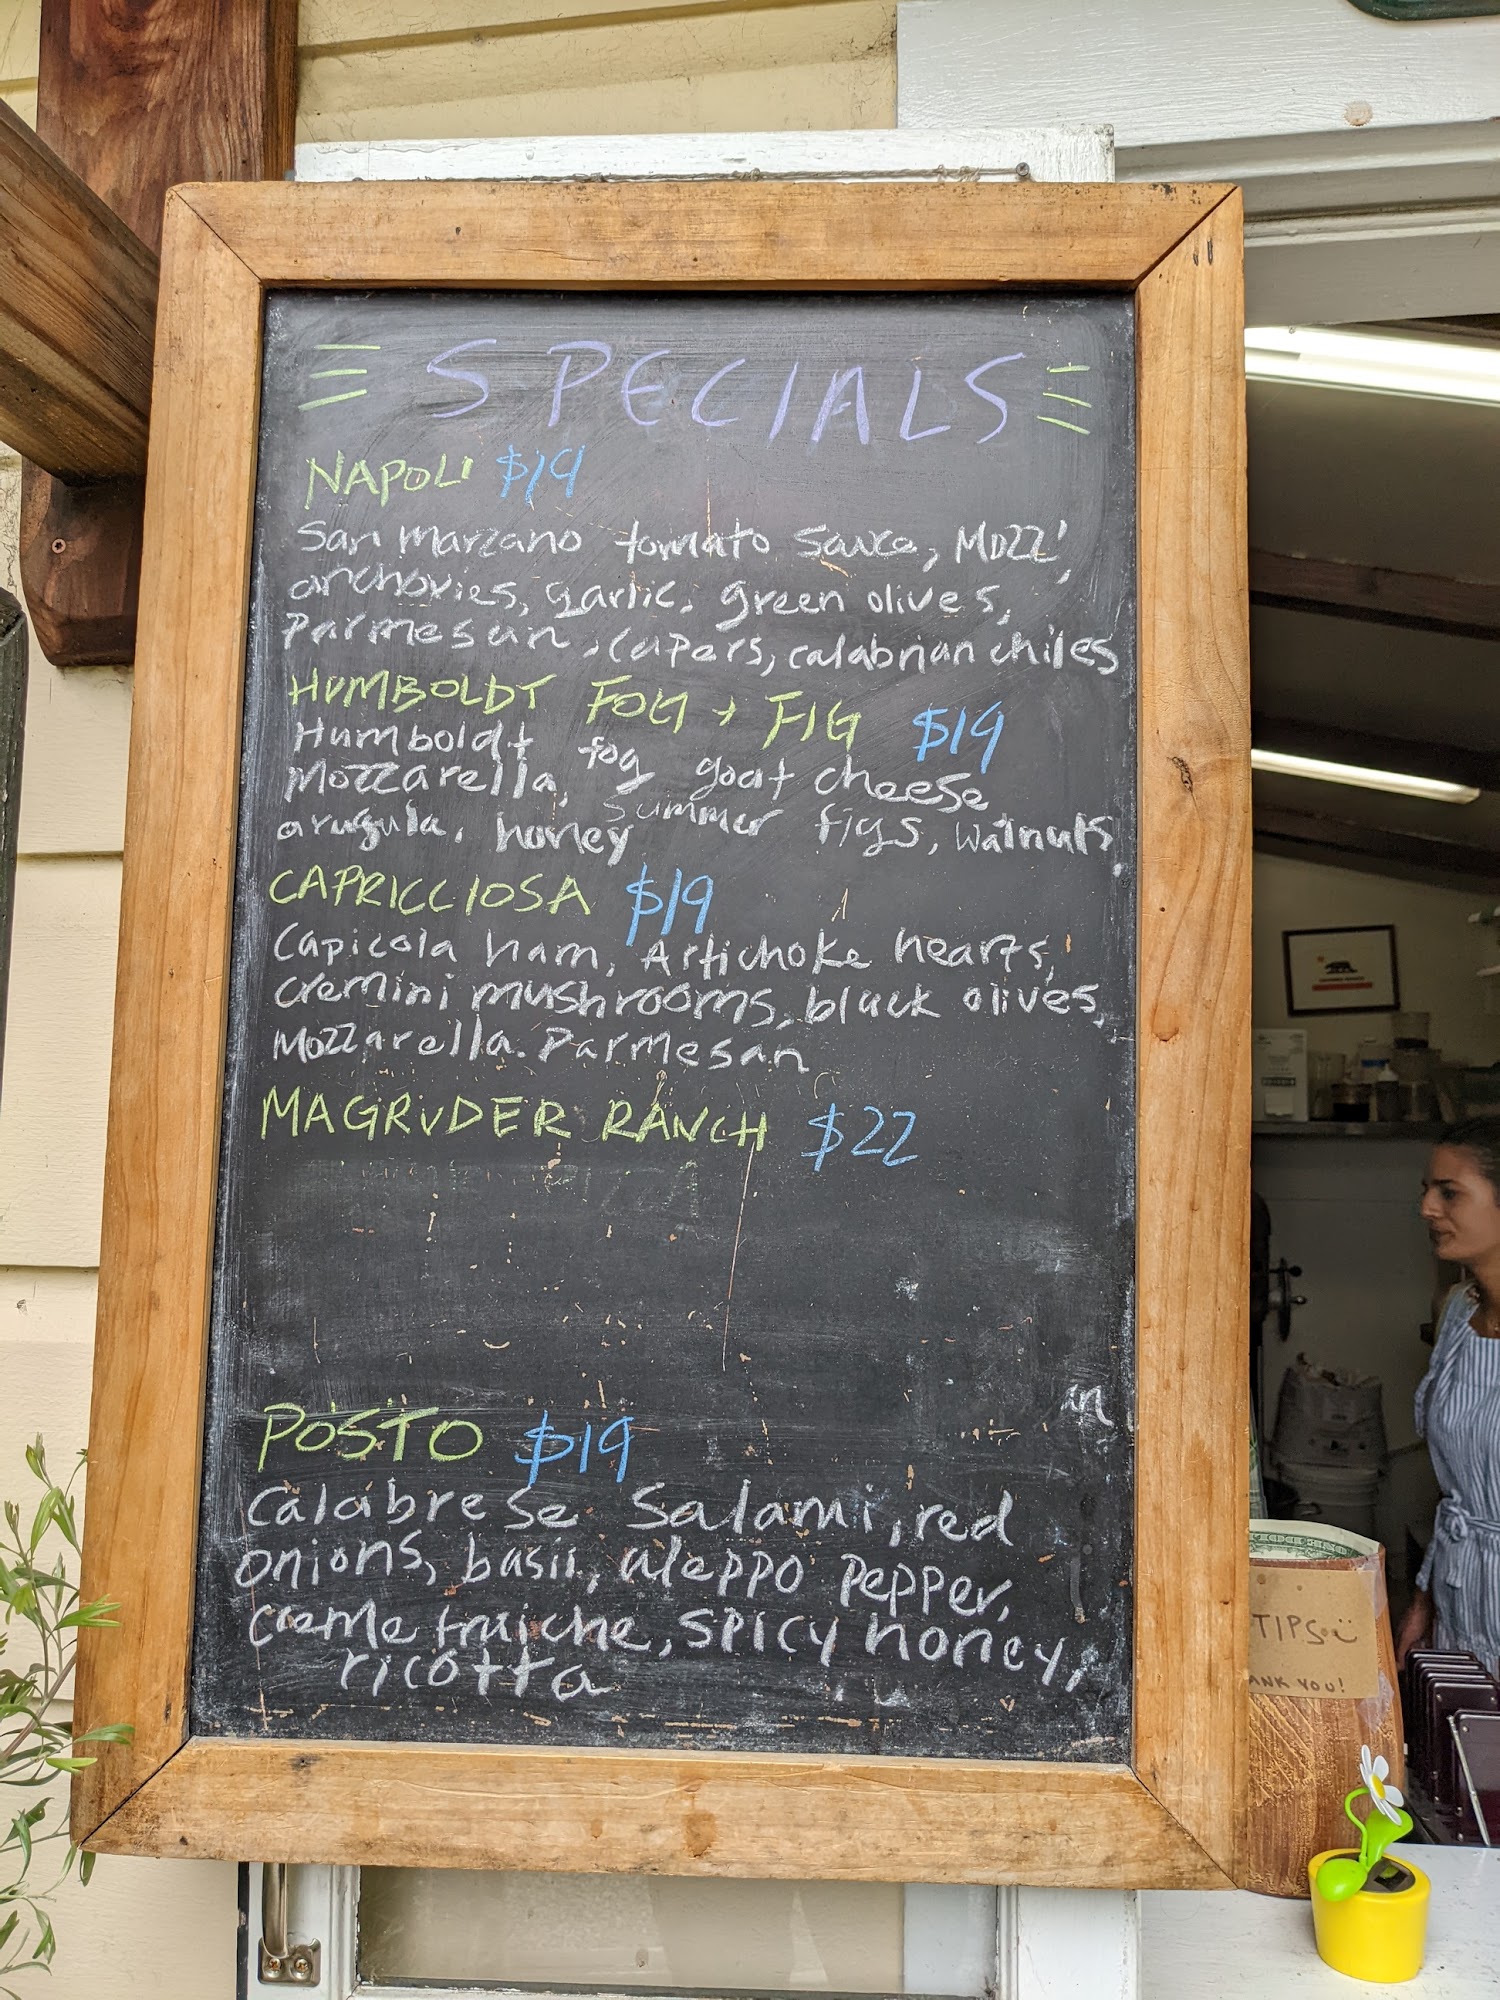 SPECIALS
NAPOLI $19
San marzano tomato sauce, Mozz',
anchovies, garlic, green olives,
Parmesan, capers, calabrian chiles
HUMBOLDT FOG + FIG $19
Humboldt fog goat cheese
Mozzarella, summer figs, walnuts,
arugula, honey
CAPRICCIOSA $19
Capicola ham, Artichoke hearts,
cremini mushrooms, black olives,
Mozzarella. Parmesan
MAGRUDER RANCH $22
POSTO $19
Calabrese Salami, red
onions, basil, aleppo pepper,
creme fraiche, spicy honey,
ricotta
TIPS
ANK YOU!